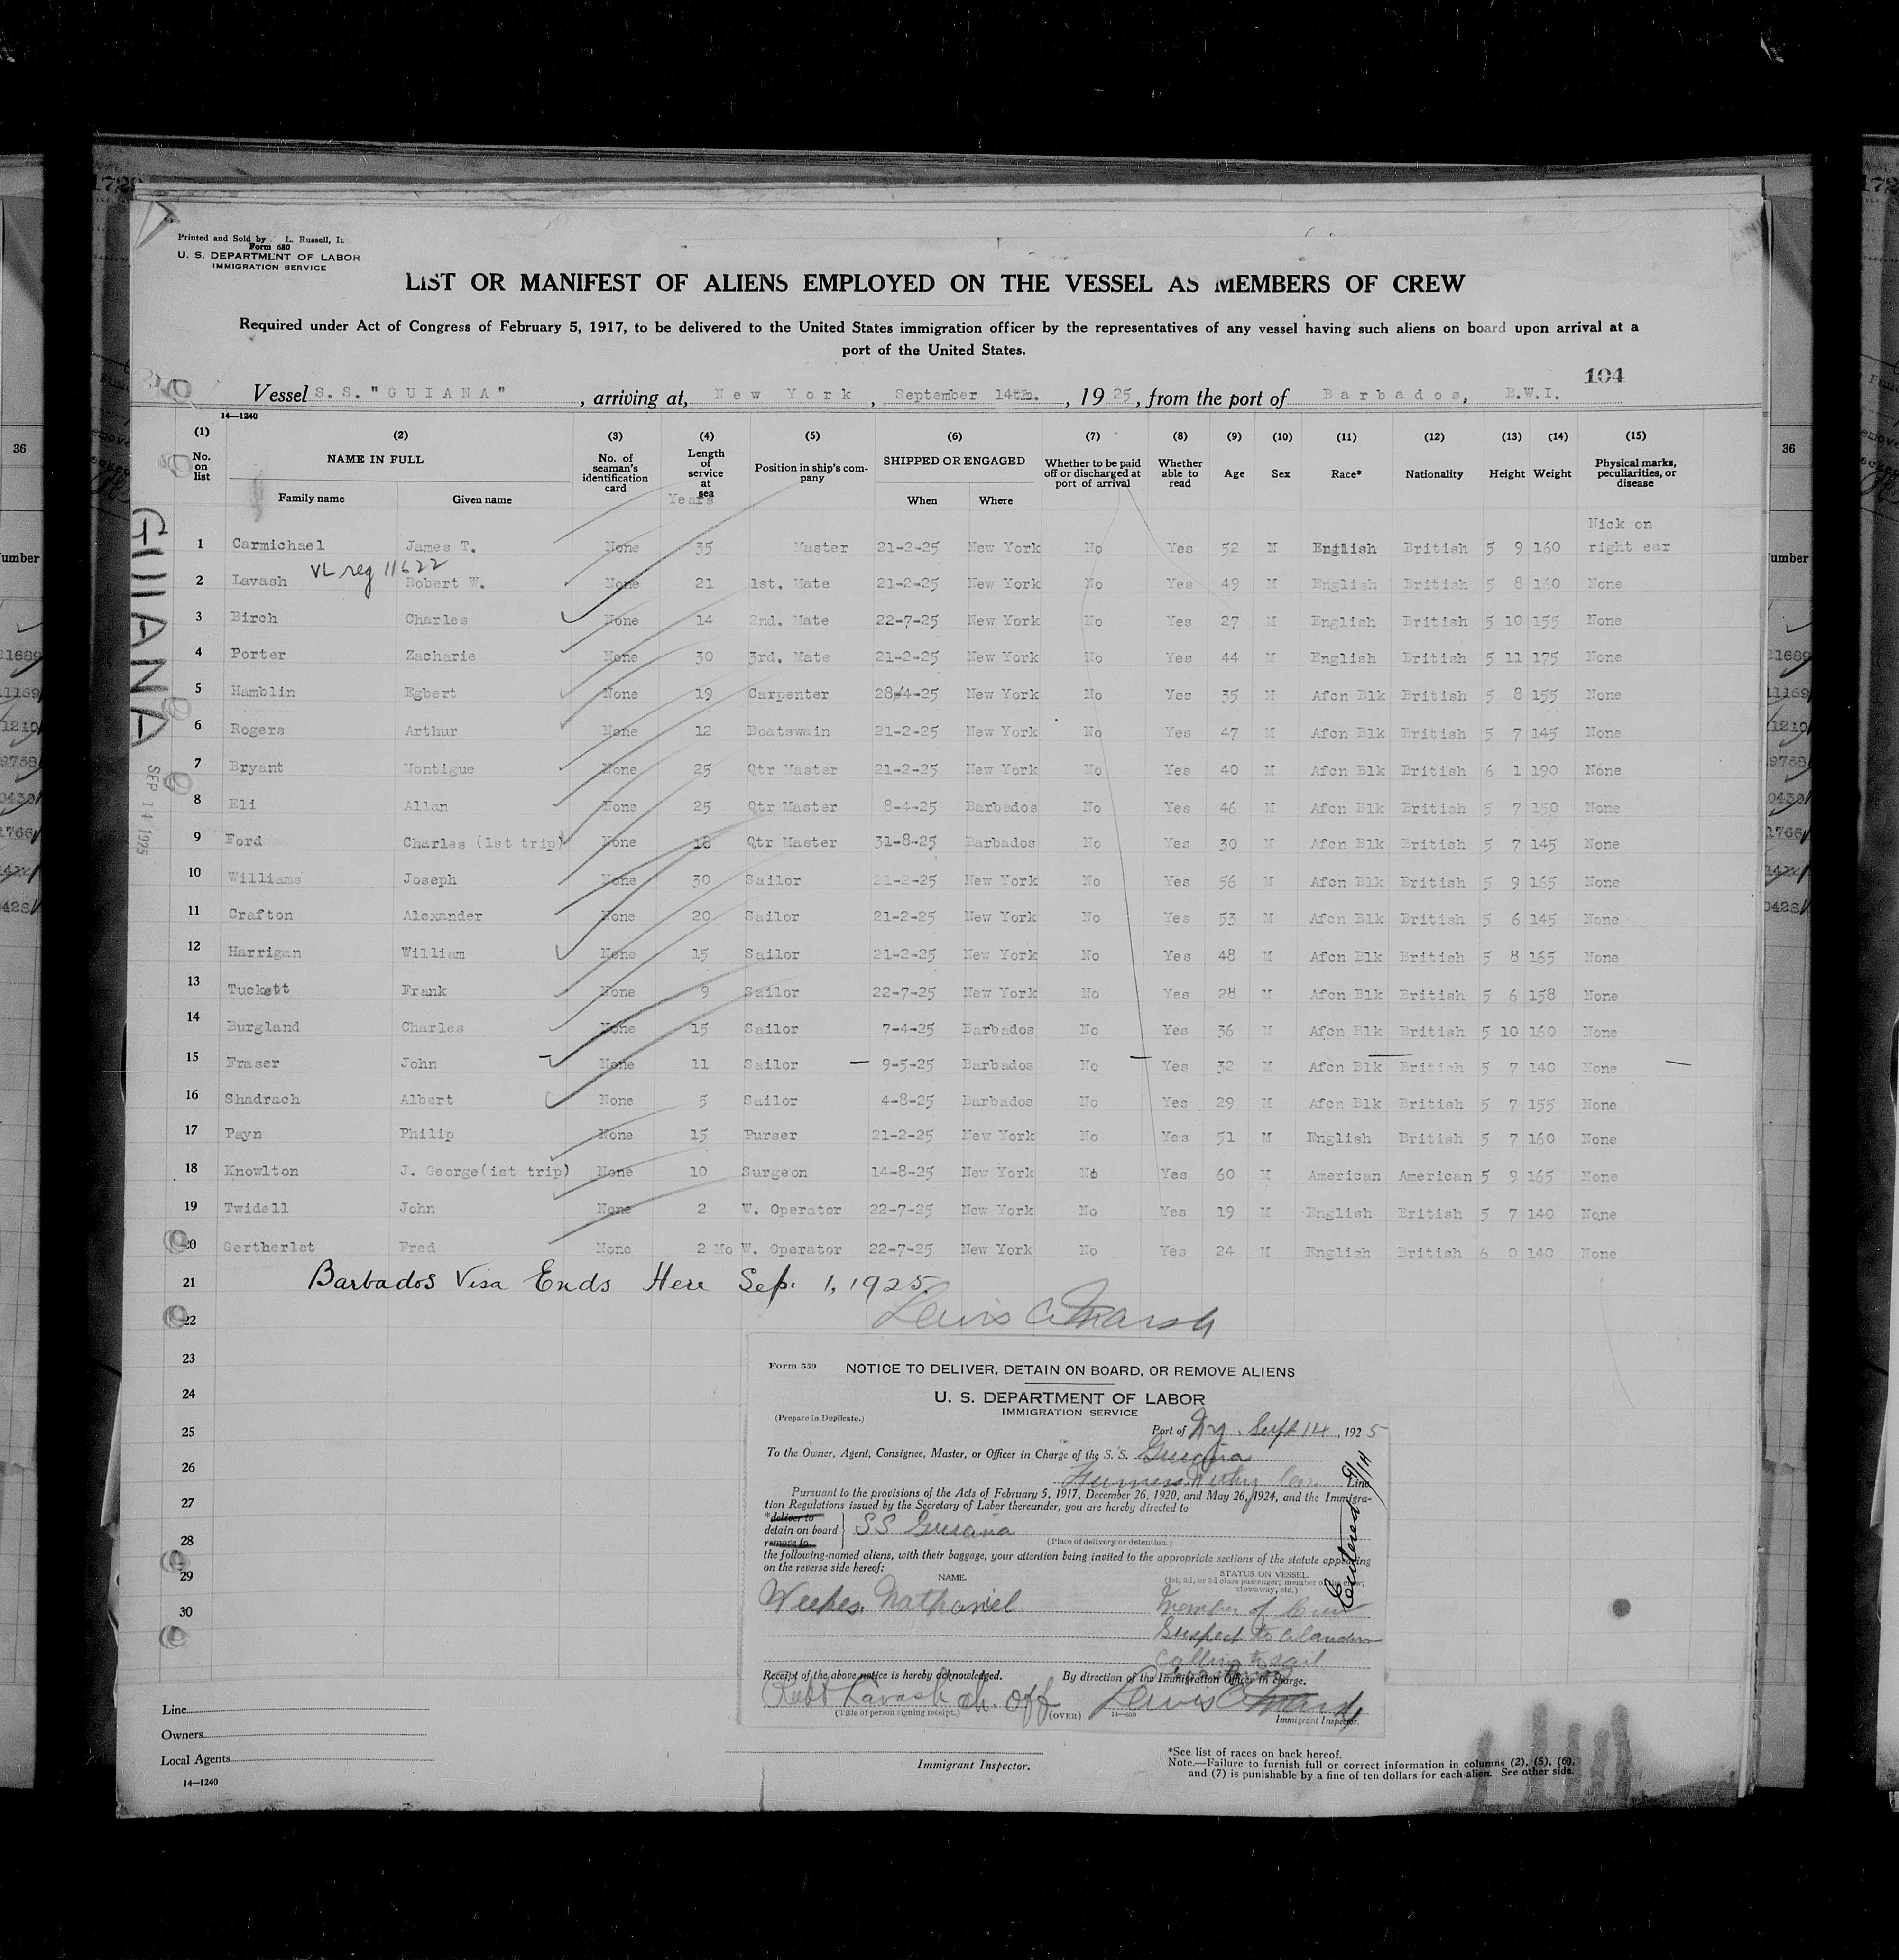 Printed and Sold by L. Russell, In
Form 680
U. S. DEPARTMENT OF LABOR
IMMIGRATION SERVICE
LIST OR MANIFEST OF ALIENS EMPLOYED ON THE VESSEL AS MEMBERS OF CREW
Required under Act of Congress of February 5, 1917, to be delivered to the United States immigration officer by the representatives of any vessel having such aliens on board upon arrival at a
port of the United States.
104
Vessel S.S. "GUIANA", arriving at, New York, September 14th., 1925, from the port of Barbados, B.W.I.
14—1240
(1) (2) (3) (4) (5) (6) (7) (8) (9) (10) (11) (12) (13) (14) (15)
No. on list NAME IN FULL No. of seaman's identification card Length of service at sea Position in ship's company SHIPPED OR ENGAGED Whether to be paid off or discharged at port of arrival Whether able to read Age Sex Race* Nationality Height Weight Physical marks, peculiarities, or disease
Family name Given name Years When Where
1 Carmichael James T. None 35 Master 21-2-25 New York No Yes 52 M English British 5 9 160 Nick on right ear
VL reg 11622
2 Lavash Robert W. None 21 1st. Mate 21-2-25 New York No Yes 49 M English British 5 8 160 None
3 Birch Charles None 14 2nd. Mate 22-7-25 New York No Yes 27 M English British 5 10 155 None
4 Porter Zacharie None 30 3rd. Mate 21-2-25 New York No Yes 44 M English British 5 11 175 None
5 Hamblin Egbert None 19 Carpenter 28-4-25 New York No Yes 35 M Afcn Blk British 5 8 155 None
6 Rogers Arthur None 12 Boatswain 21-2-25 New York No Yes 47 M Afcn Blk British 5 7 145 None
7 Bryant Montigue None 25 Qtr Master 21-2-25 New York No Yes 40 M Afcn Blk British 6 1 190 None
8 Eli Allan None 25 Qtr Master 8-4-25 Barbados No Yes 46 M Afcn Blk British 5 7 150 None
9 Ford Charles (1st trip) None 18 Qtr Master 31-8-25 Barbados No Yes 30 M Afcn Blk British 5 7 145 None
10 Williams Joseph None 30 Sailor 21-2-25 New York No Yes 56 M Afcn Blk British 5 9 165 None
11 Crafton Alexander None 20 Sailor 21-2-25 New York No Yes 53 M Afcn Blk British 5 6 145 None
12 Harrigan William None 15 Sailor 21-2-25 New York No Yes 48 M Afcn Blk British 5 8 165 None
13 Tuckett Frank None 9 Sailor 22-7-25 New York No Yes 28 M Afcn Blk British 5 6 158 None
14 Burgland Charles None 15 Sailor 7-4-25 Barbados No Yes 36 M Afcn Blk British 5 10 160 None
15 Fraser John None 11 Sailor 9-5-25 Barbados No Yes 32 M Afcn Blk British 5 7 140 None
16 Shadrach Albert None 5 Sailor 4-8-25 Barbados No Yes 29 M Afcn Blk British 5 7 155 None
17 Payn Philip None 15 Purser 21-2-25 New York No Yes 51 M English British 5 7 160 None
18 Knowlton J. George(ist trip) None 10 Surgeon 14-8-25 New York No Yes 60 M American American 5 9 165 None
19 Twidell John None 2 W. Operator 22-7-25 New York No Yes 19 M English British 5 7 140 None
20 Gertherlet Fred None 2 Mo W. Operator 22-7-25 New York No Yes 24 M English British 6 0 140 None
21 Barbados Visa Ends Here Sep. 1, 1925.
22 Lewis C Marsh
23
24
25
26
27
28
29
30
GUIANA
SEP 14 1925
Form 559
NOTICE TO DELIVER, DETAIN ON BOARD, OR REMOVE ALIENS
U. S. DEPARTMENT OF LABOR
IMMIGRATION SERVICE
(Prepare in Duplicate.)
Port of N.Y. Sept 14, 1925
To the Owner, Agent, Consignee, Master, or Officer in Charge of the S. S. Guiana
Furness Withy Line
Pursuant to the provisions of the Acts of February 5, 1917, December 26, 1920, and May 26, 1924, and the Immigra-
tion Regulations issued by the Secretary of Labor thereunder, you are hereby directed to
*deliver to
detain on board SS Guiana
remove to
(Place of delivery or detention.)
the following-named aliens, with their baggage, your attention being invited to the appropriate sections of the statute appearing
on the reverse side hereof:
NAME. STATUS ON VESSEL.
(1st, 2d, or 3d class passenger; member of the crew; stowaway, etc.)
Weekes, Nathaniel Member of Crew
Suspect to abandon
calling to sail
Entered 9/14
Receipt of the above notice is hereby acknowledged. By direction of the Immigration Officer in charge.
Robt Lavash Ch. Off Lewis C Marsh
(Title of person signing receipt.) (OVER) 14—560 Immigrant Inspector.
Line
Owners
Local Agents
14—1240
Immigrant Inspector.
*See list of races on back hereof.
Note.—Failure to furnish full or correct information in columns (2), (5), (6),
and (7) is punishable by a fine of ten dollars for each alien. See other side.
36
umber
21689
11169
11210
9758
0430
1766
0428
36
umber
21689
11169
11210
9758
0430
1766
0428